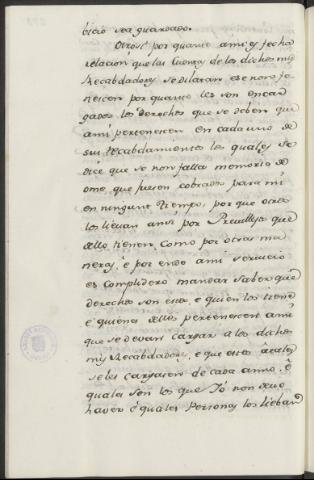 bicio sea guardado.
Otrosi por quanto a mi es fecha
relacion que las Cuentas de los dichos mis
Recabdadores se dilatan e se non fe-
nescen por quanto les son encar
gados los derechos que se deben que
a mi pertenescen en cada uno de
sus Recabdamientos los quales se
dice que se non falla memoria de
ome, que fuesen cobrados para mi
en ningunt tiempo, por que otros
los lievan ansi por Previllejos que
dello tienen, como por otras ma
neras, é por ende a mi servicio
es complidero mandar saber que
derechos son estos, e quien los tiene
é quienes dellos pertenescen a mi
que se devan cargar a los dichos
mis Recabdadores, e que estos a tales
se les cargasen de cada anno, é
quales son los que Yó non devo
haver é quales Personas los lieban